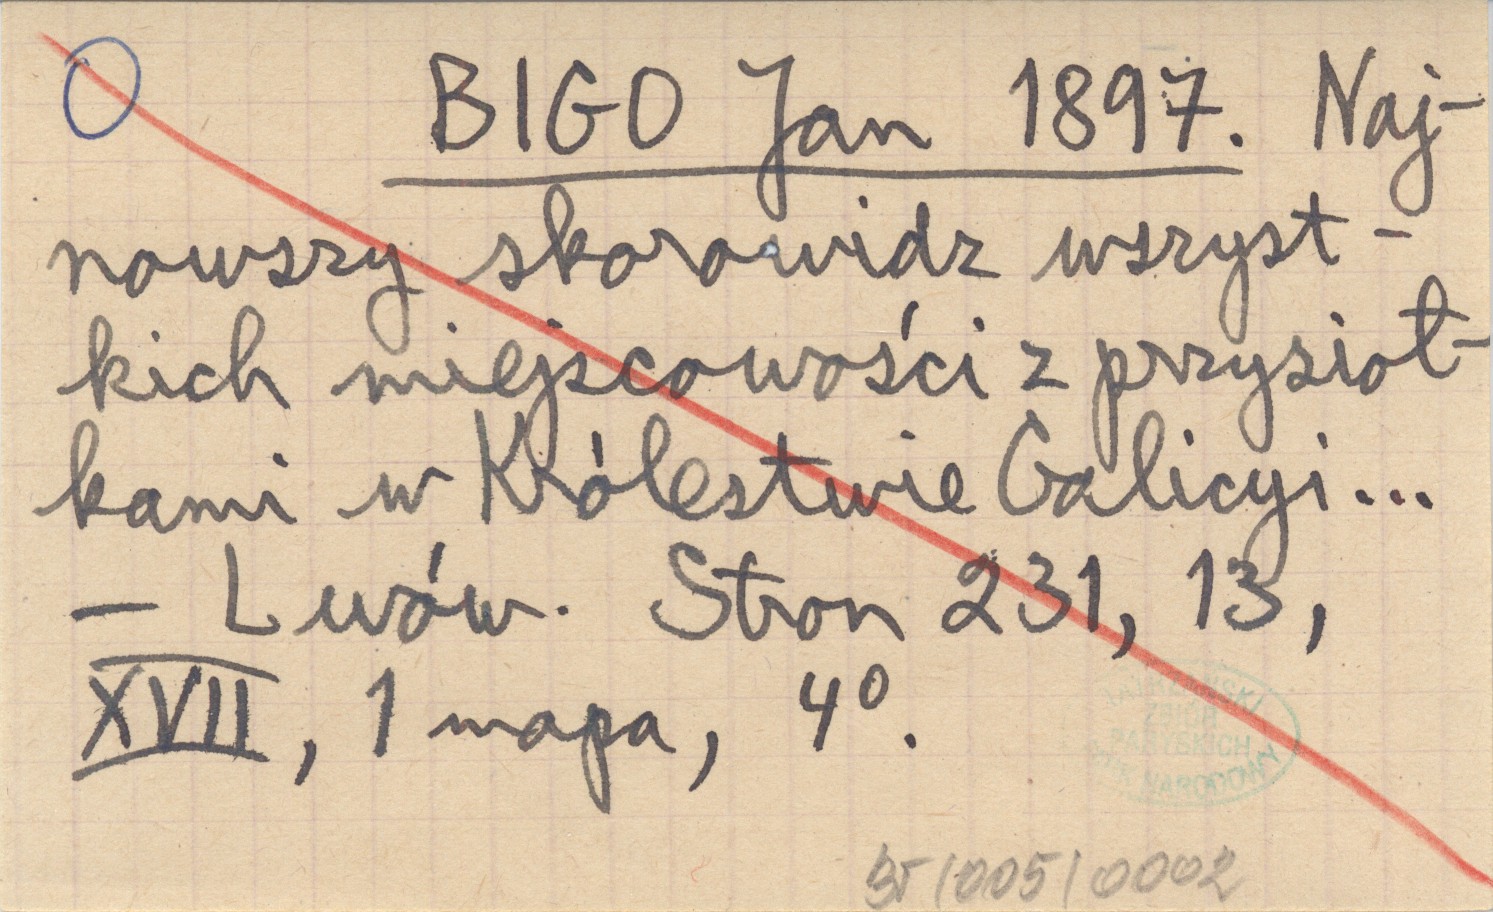 O BIGO Jan 1897. Naj-
nowszy skorowidz wszyst-
kich miejscowości z przysioł-
kami w Królestwie Galicyi...
— Lwów. Stron 231, 13,
XVII, 1 mapa, 4⁰.
TATRZAŃSKI
ZBIÓR
PARYSKICH
PARK NARODOWY
/005/0002